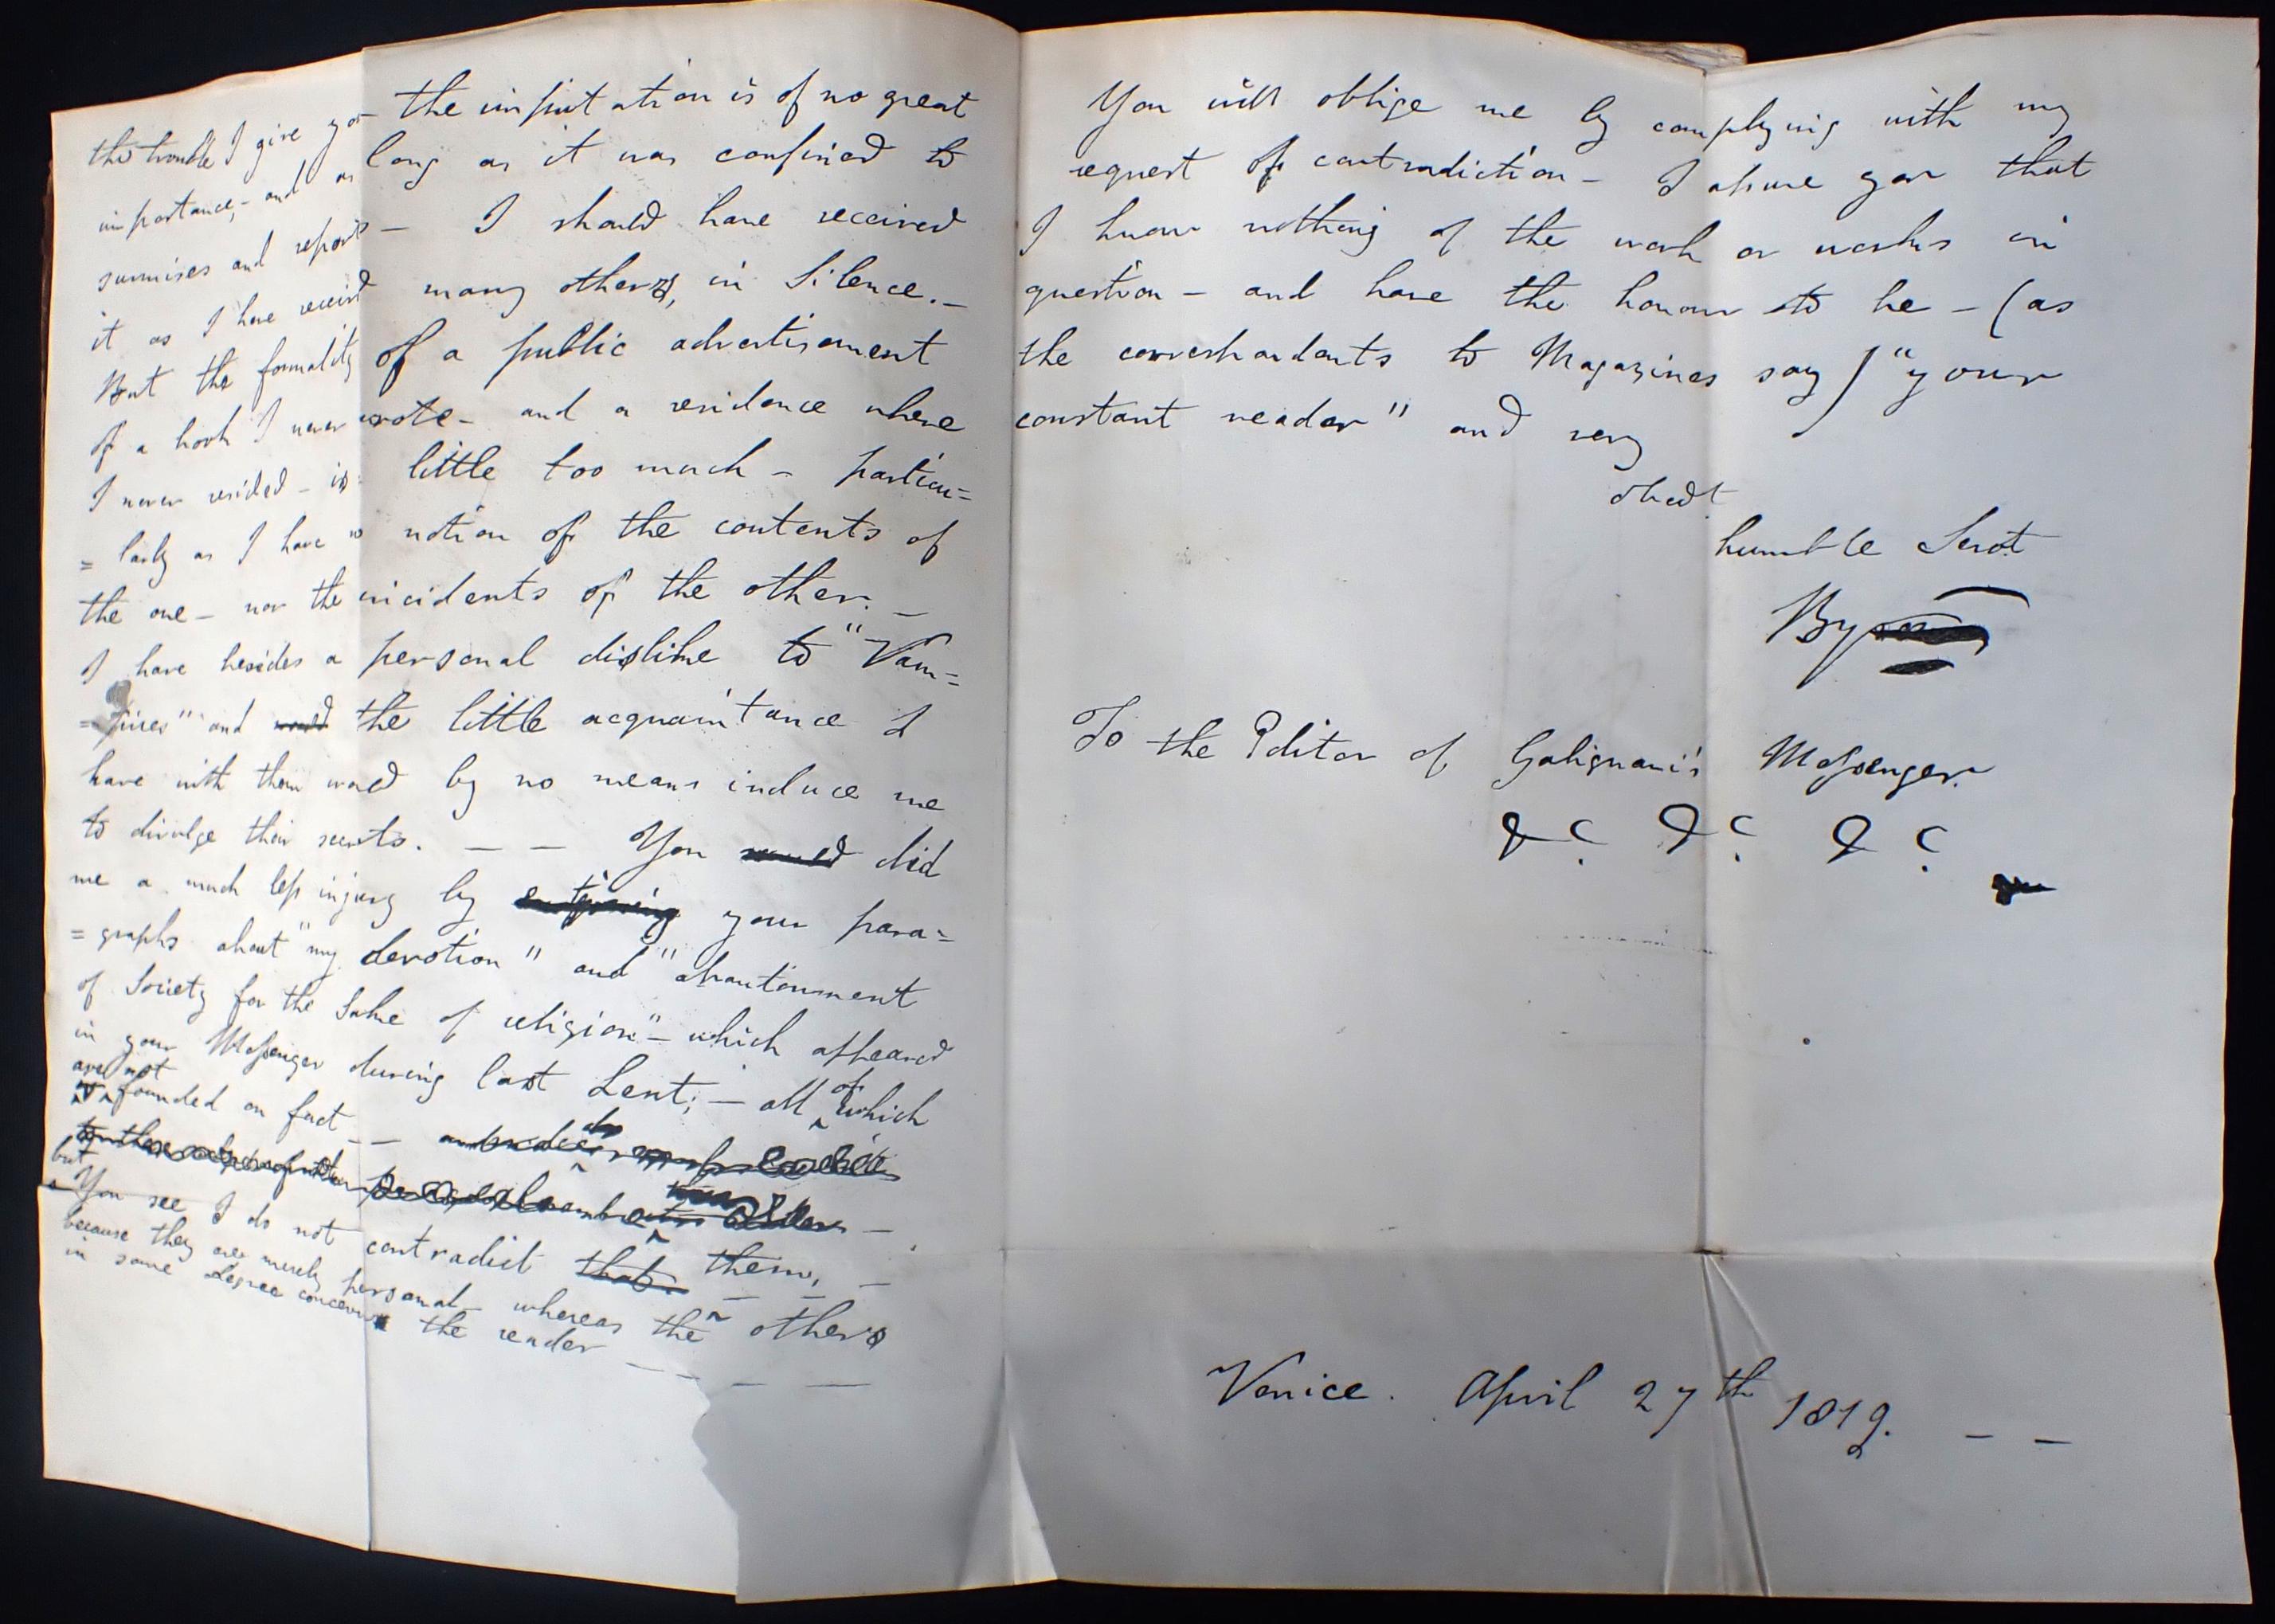 the trouble I give you – the imputation is of no great
importance, – and as long as it was confined to
surmises and reports – I should have received
it as I have received many others, in Silence. –
But the formality of a public advertisement
of a book I never wrote – and a residence where
I never resided – is little too much – particu=
=larly as I have no notion of the contents of
the one – nor the incidents of the other. –
I have besides a personal dislike to "Vam=
=pires" and the little acquaintance I
have with them would by no means induce me
to divulge their secrets. – – You did
me a much less injury by your para=
=graphs about "my devotion" and "abandonment
of Society for the Sake of religion" – which appeared
in your Messenger during last Lent; – all of which
are not founded on fact – –
but You see I do not contradict that them, –
because they are merely personal – whereas the others
in some degree concern the reader – – –
You will oblige me by complying with my
request of contradiction – I assure you that
I know nothing of the work or works in
question – and have the honour to be – (as
the correspondents to Magazines say) "your
constant reader" and very
obedt
humble Servt
Byron
To the Editor of Galignani's Messenger.
&c. &c. &c.
Venice. April 27th 1819. – –